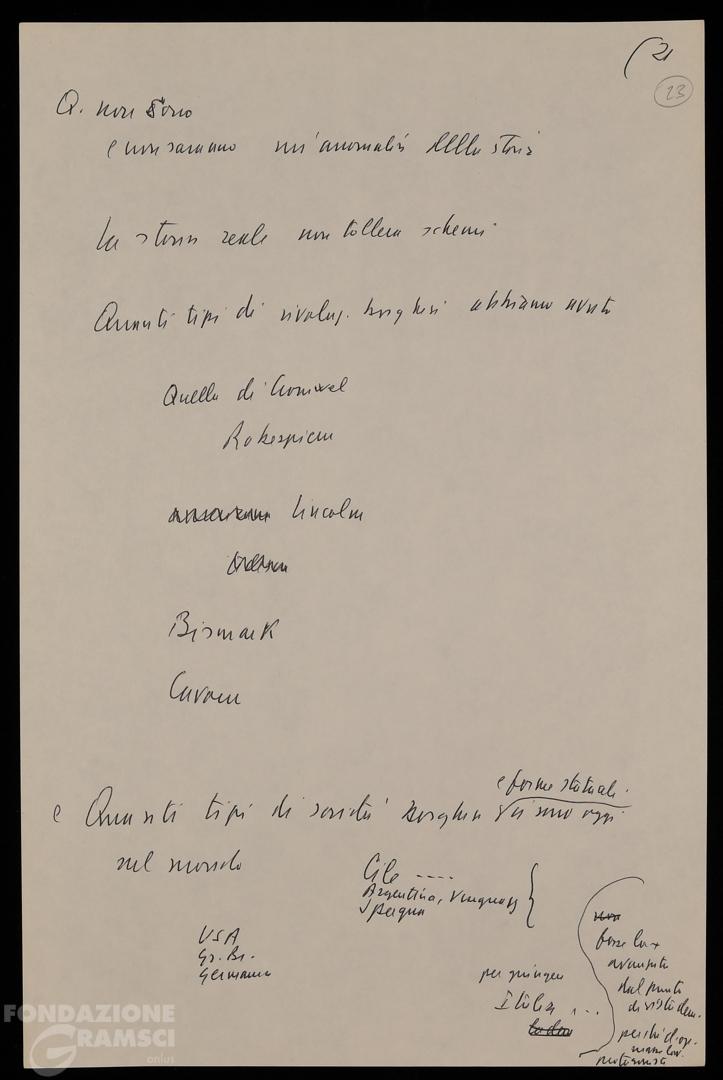 (21
23
Q. non sono
e non saranno un'anomalia della storia
La storia reale non tollera schemi
Quanti tipi di rivoluz. borghesi abbiamo avuto
Quella di Cromwel
Robespierre
Lincoln
Bismark
Cavour
e forme statuali.
e Quanti tipi di società borghese vi sono oggi
nel mondo
Cile ----
Argentina, Uruguay
Spagna
USA
Gr. Br.
Germania
non
forse la +
avanzata
dal punto
di vista dem.
per giungere
Italia ...
perché c'è
FONDAZIONE
GRAMSCI
onlus